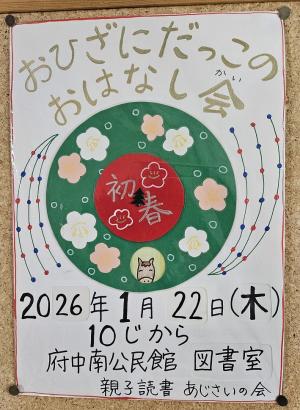 おひざにだっこの
おはなし会
かい
初春
2026年1月22日(木)
10じから
府中南公民館 図書室
親子読書 あじさいの会